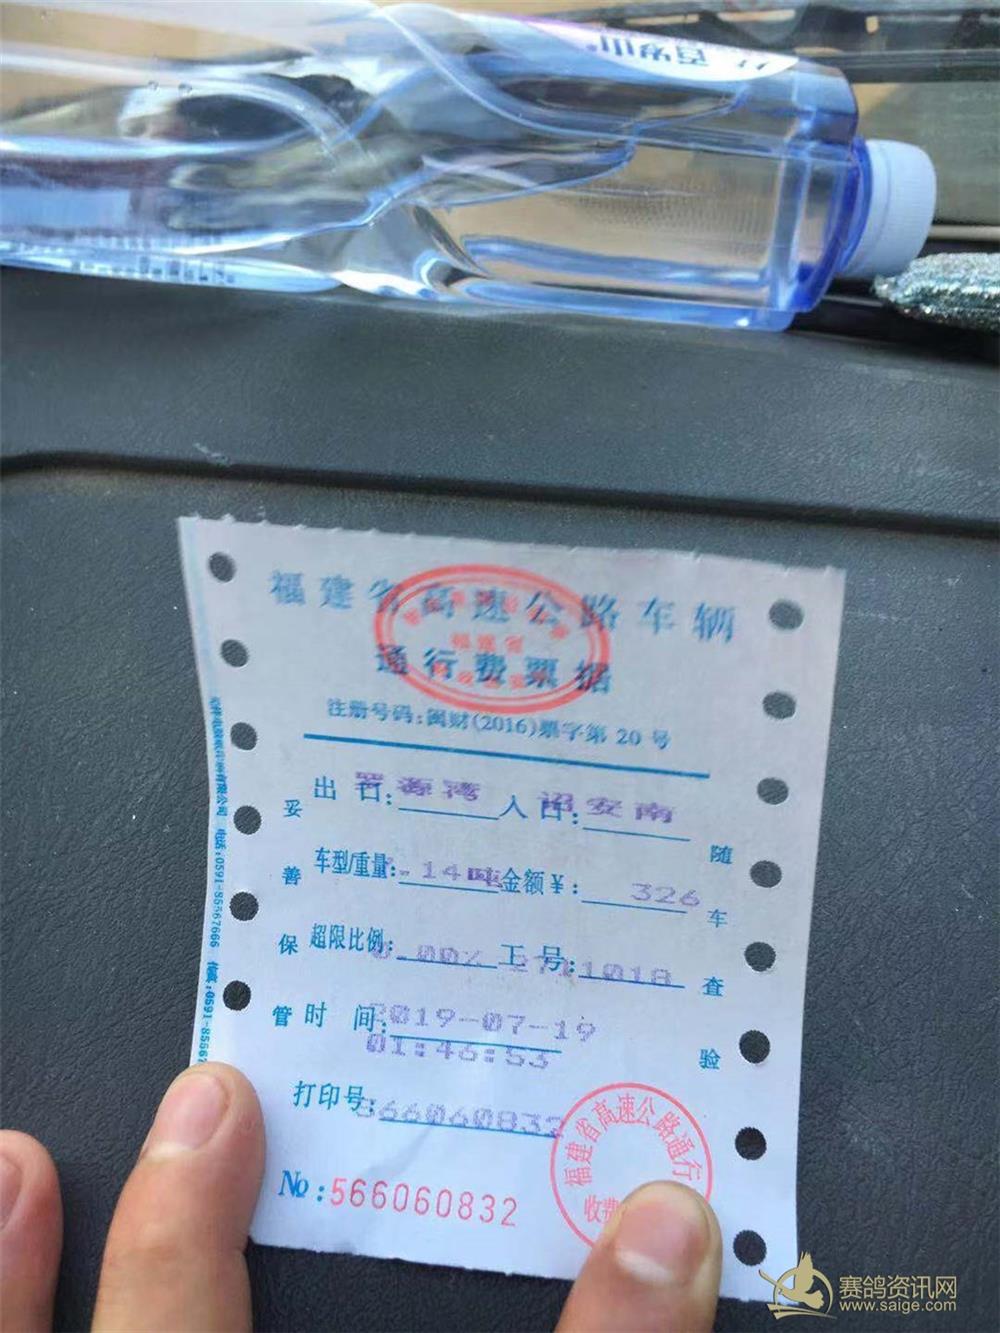 百岁山
福建省高速公路车辆
通行费票据
注册号码:闽财(2016)票字第 20 号
出口: 罗源湾 入口: 诏安南
车型/重量: .14吨 金额¥: 326
超限比例: 0.00% 工号: 2711018
时间: 2019-07-19
01:46:53
打印号: 566060832
№:566060832
妥善保管
随车查验
电话:0591-85567666 传真:0591-85567
福建省高速公路通行
收费
赛鸽资讯网
www.saige.com